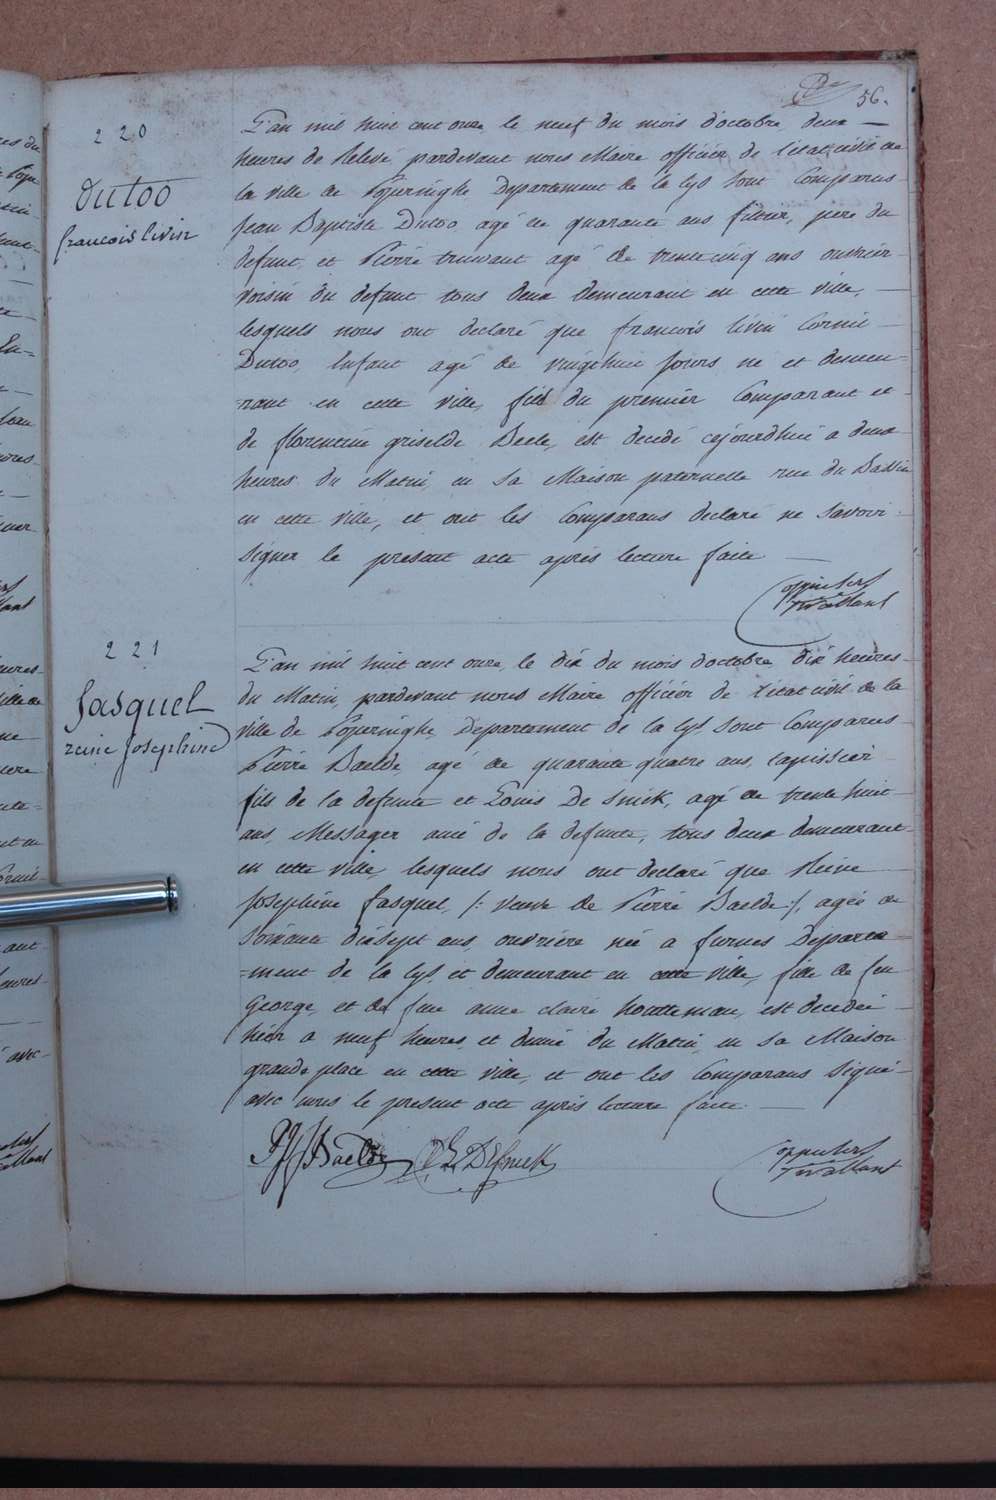 56.
220
Dutoo
francois livin
L'an mil huit cent onze le neuf du mois d'octobre deux —
heures de Relevé pardevant nous Maire officier de l'état civil de
la ville de Poperinghe Departement de la Lys sont Comparus
Jean Baptiste Dutoo, agé de quarante ans fileur, pere du
defunt, et Pierre truwant agé de trente cinq ans ouvrier
voisin du defunt tous deux demeurant en cette ville, —
lesquels nous ont declaré que francois livin Cornil —
Dutoo, Enfant agé de vingthuit jours né et demeu-
-rant en cette ville, fils du premier Comparant et
de florentine griselde Beele, est decedé cejourdhui a deux
heures du Matin, en sa Maison paternelle rue du Bassin
en cette ville, et ont les Comparans declaré ne savoir
signer le present acte après lecture faite —
221
fasquel
reine Josephine
L'an mil huit cent onze, le dix du mois d'octobre dix heures
du Matin, pardevant nous Maire officier de l'état civil de la
ville de Poperinghe, Departement de la Lys sont Comparus
Pierre Baelde agé de quarante quatre ans, tapissier
fils de la defunte et Louis De Snick, agé de trente huit
ans, Messager ami de la defunte, tous deux demeurant
en cette ville, lesquels nous ont declaré que Reine —
Josephine fasquel, /: veuve de Pierre Baelde :/, agée de
soixante dixsept ans, ouvrière née a furnes Departe-
-ment de la Lys, et demeurant en cette ville, fille de feu
George, et de feue anne claire houtteman, est decedée
hier a neuf heures et demie du Matin, en sa Maison
grande place en cette ville, et ont les Comparans signé
avec nous le present acte après lecture faite —
Baelde